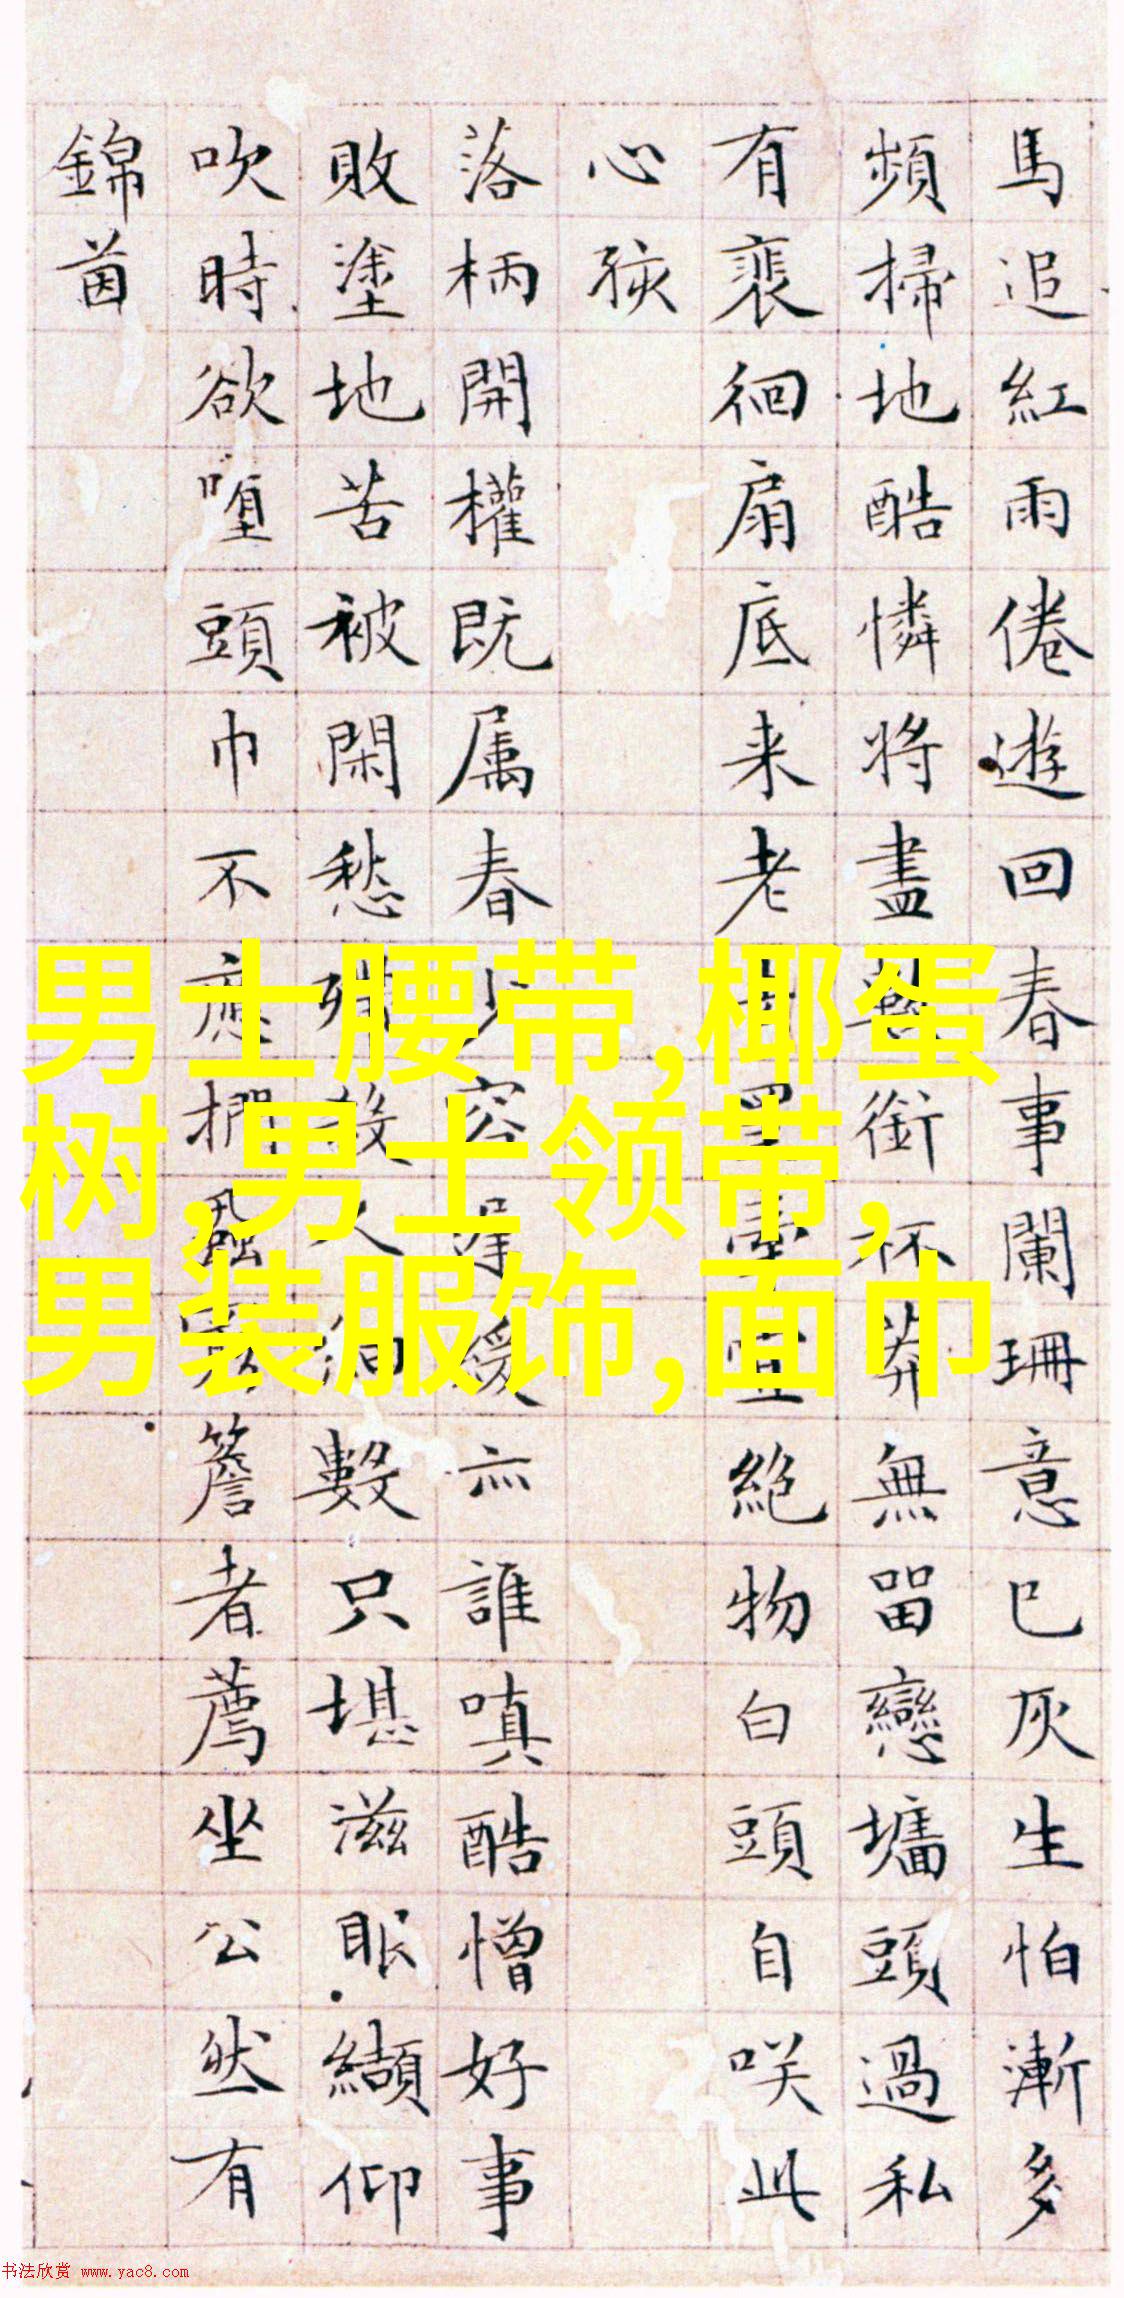 馬追紅雨倦遊回春事闌珊意已灰生怕漸多
頻掃地酷憐將盡銜杯莽無留戀墉頭過私
有裵徊扇底来老宜絶物白頭自咲此
心孩
落柄開權既属春少容緩亦誰嗔酷憎好事
敗塗地苦被閑愁殺久細數只堪滋眠纈仰
吹時欲堕頭巾不應簷者薦坐公然有
錦茵
男士腰带,椰蛋
树,男士领带,
男装服饰,面巾
书法欣赏 www.yac8.com